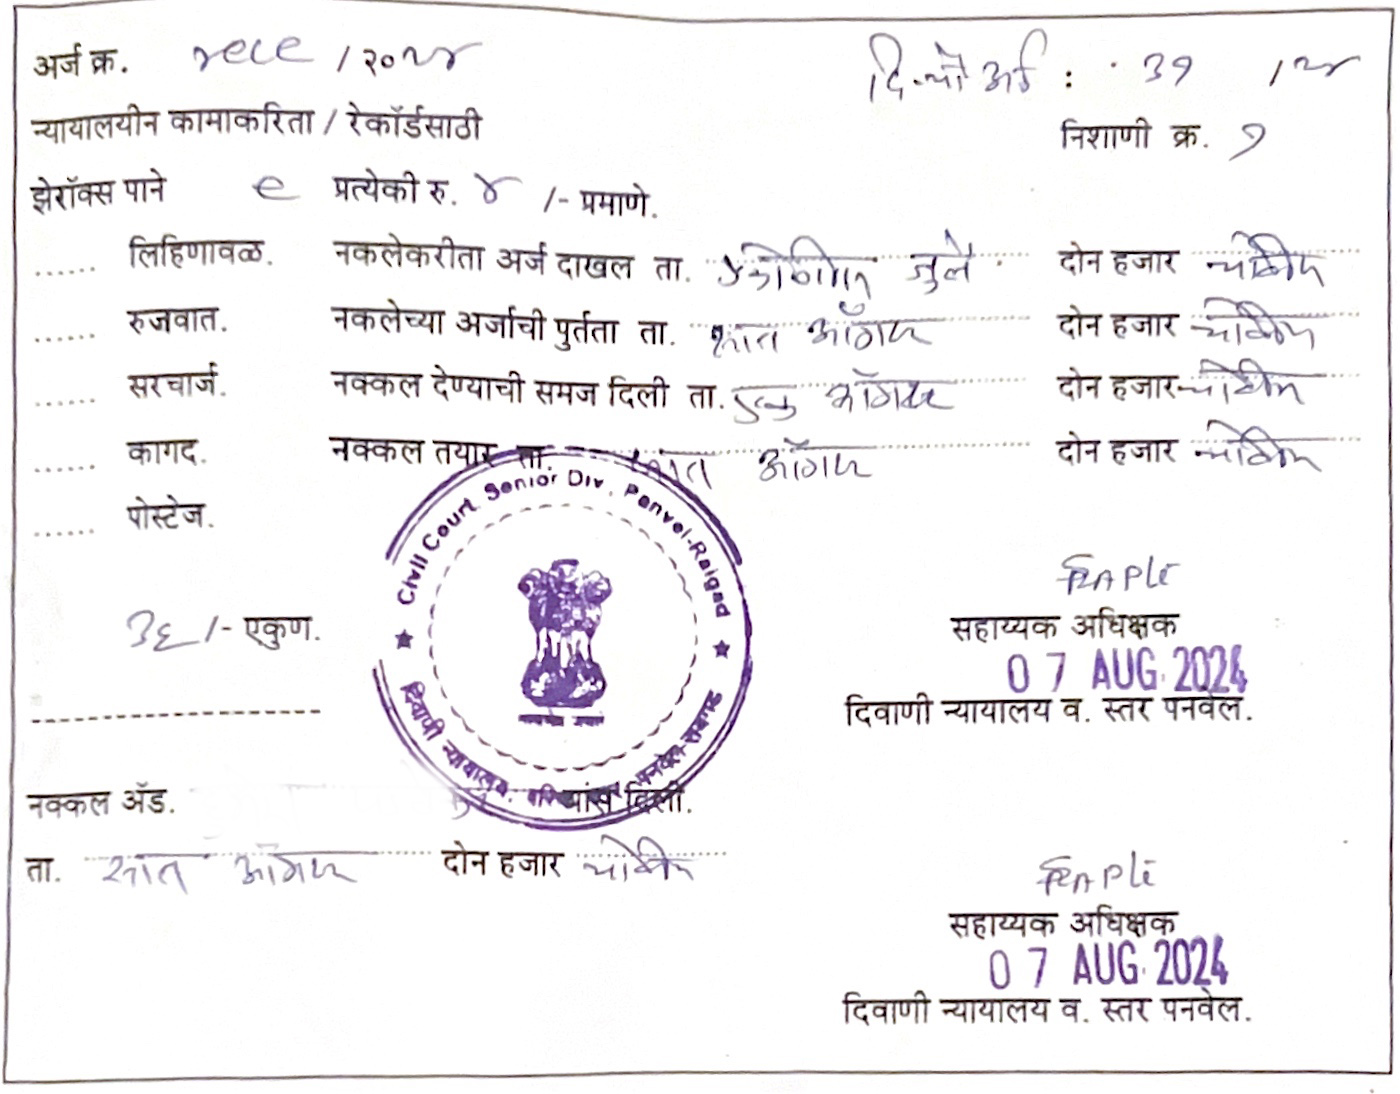 अर्ज क्र. / २०२४
दि. चौ. अर्ज : ३१ / २४
न्यायालयीन कामाकरिता / रेकॉर्डसाठी
निशाणी क्र. १
झेरॉक्स पाने ९ प्रत्येकी रु. ४ /- प्रमाणे.
...... लिहिणावळ. नकलेकरीता अर्ज दाखल ता. एकोणतीस जुलै दोन हजार चोवीस
...... रुजवात. नकलेच्या अर्जाची पुर्तता ता. सात ऑगस्ट दोन हजार चोवीस
...... सरचार्ज. नक्कल देण्याची समज दिली ता. एक ऑगस्ट दोन हजार चोवीस
...... कागद. नक्कल तयार ता. सात ऑगस्ट दोन हजार चोवीस
...... पोस्टेज.
Civil Court Senior Div. Panvel-Raigad
दिवाणी न्यायालय, पनवेल-रायगड
३६ /- एकुण.
सहाय्यक अधिक्षक
07 AUG 2024
दिवाणी न्यायालय व. स्तर पनवेल.
नक्कल ॲड. यांस दिली.
ता. सात ऑगस्ट दोन हजार चोवीस
सहाय्यक अधिक्षक
07 AUG 2024
दिवाणी न्यायालय व. स्तर पनवेल.